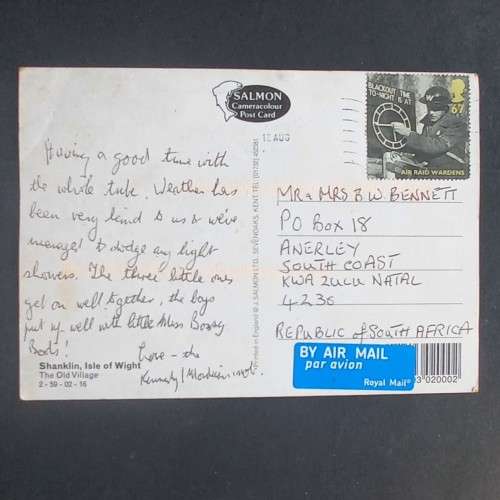 SALMON
Cameracolour
Post Card
BLACKOUT TIME
TO-NIGHT IS AT
67
AIR RAID WARDENS
AUG
Having a good time with
the whole tribe. Weather has
been very kind to us & we've
managed to dodge any light
showers. The three little ones
get on well together, the boys
put up well with little Miss Bossy
Boots!
Love - the
Kennedy /
Shanklin, Isle of Wight
The Old Village
2-59-02-16
Printed in England © J. SALMON LTD., SEVENOAKS, KENT TEL: (01732) 452381
MR & MRS B W BENNETT
PO BOX 18
ANERLEY
SOUTH COAST
KWA ZULU NATAL
4230
REPUBLIC OF SOUTH AFRICA
BY AIR MAIL
par avion
Royal Mail
020002